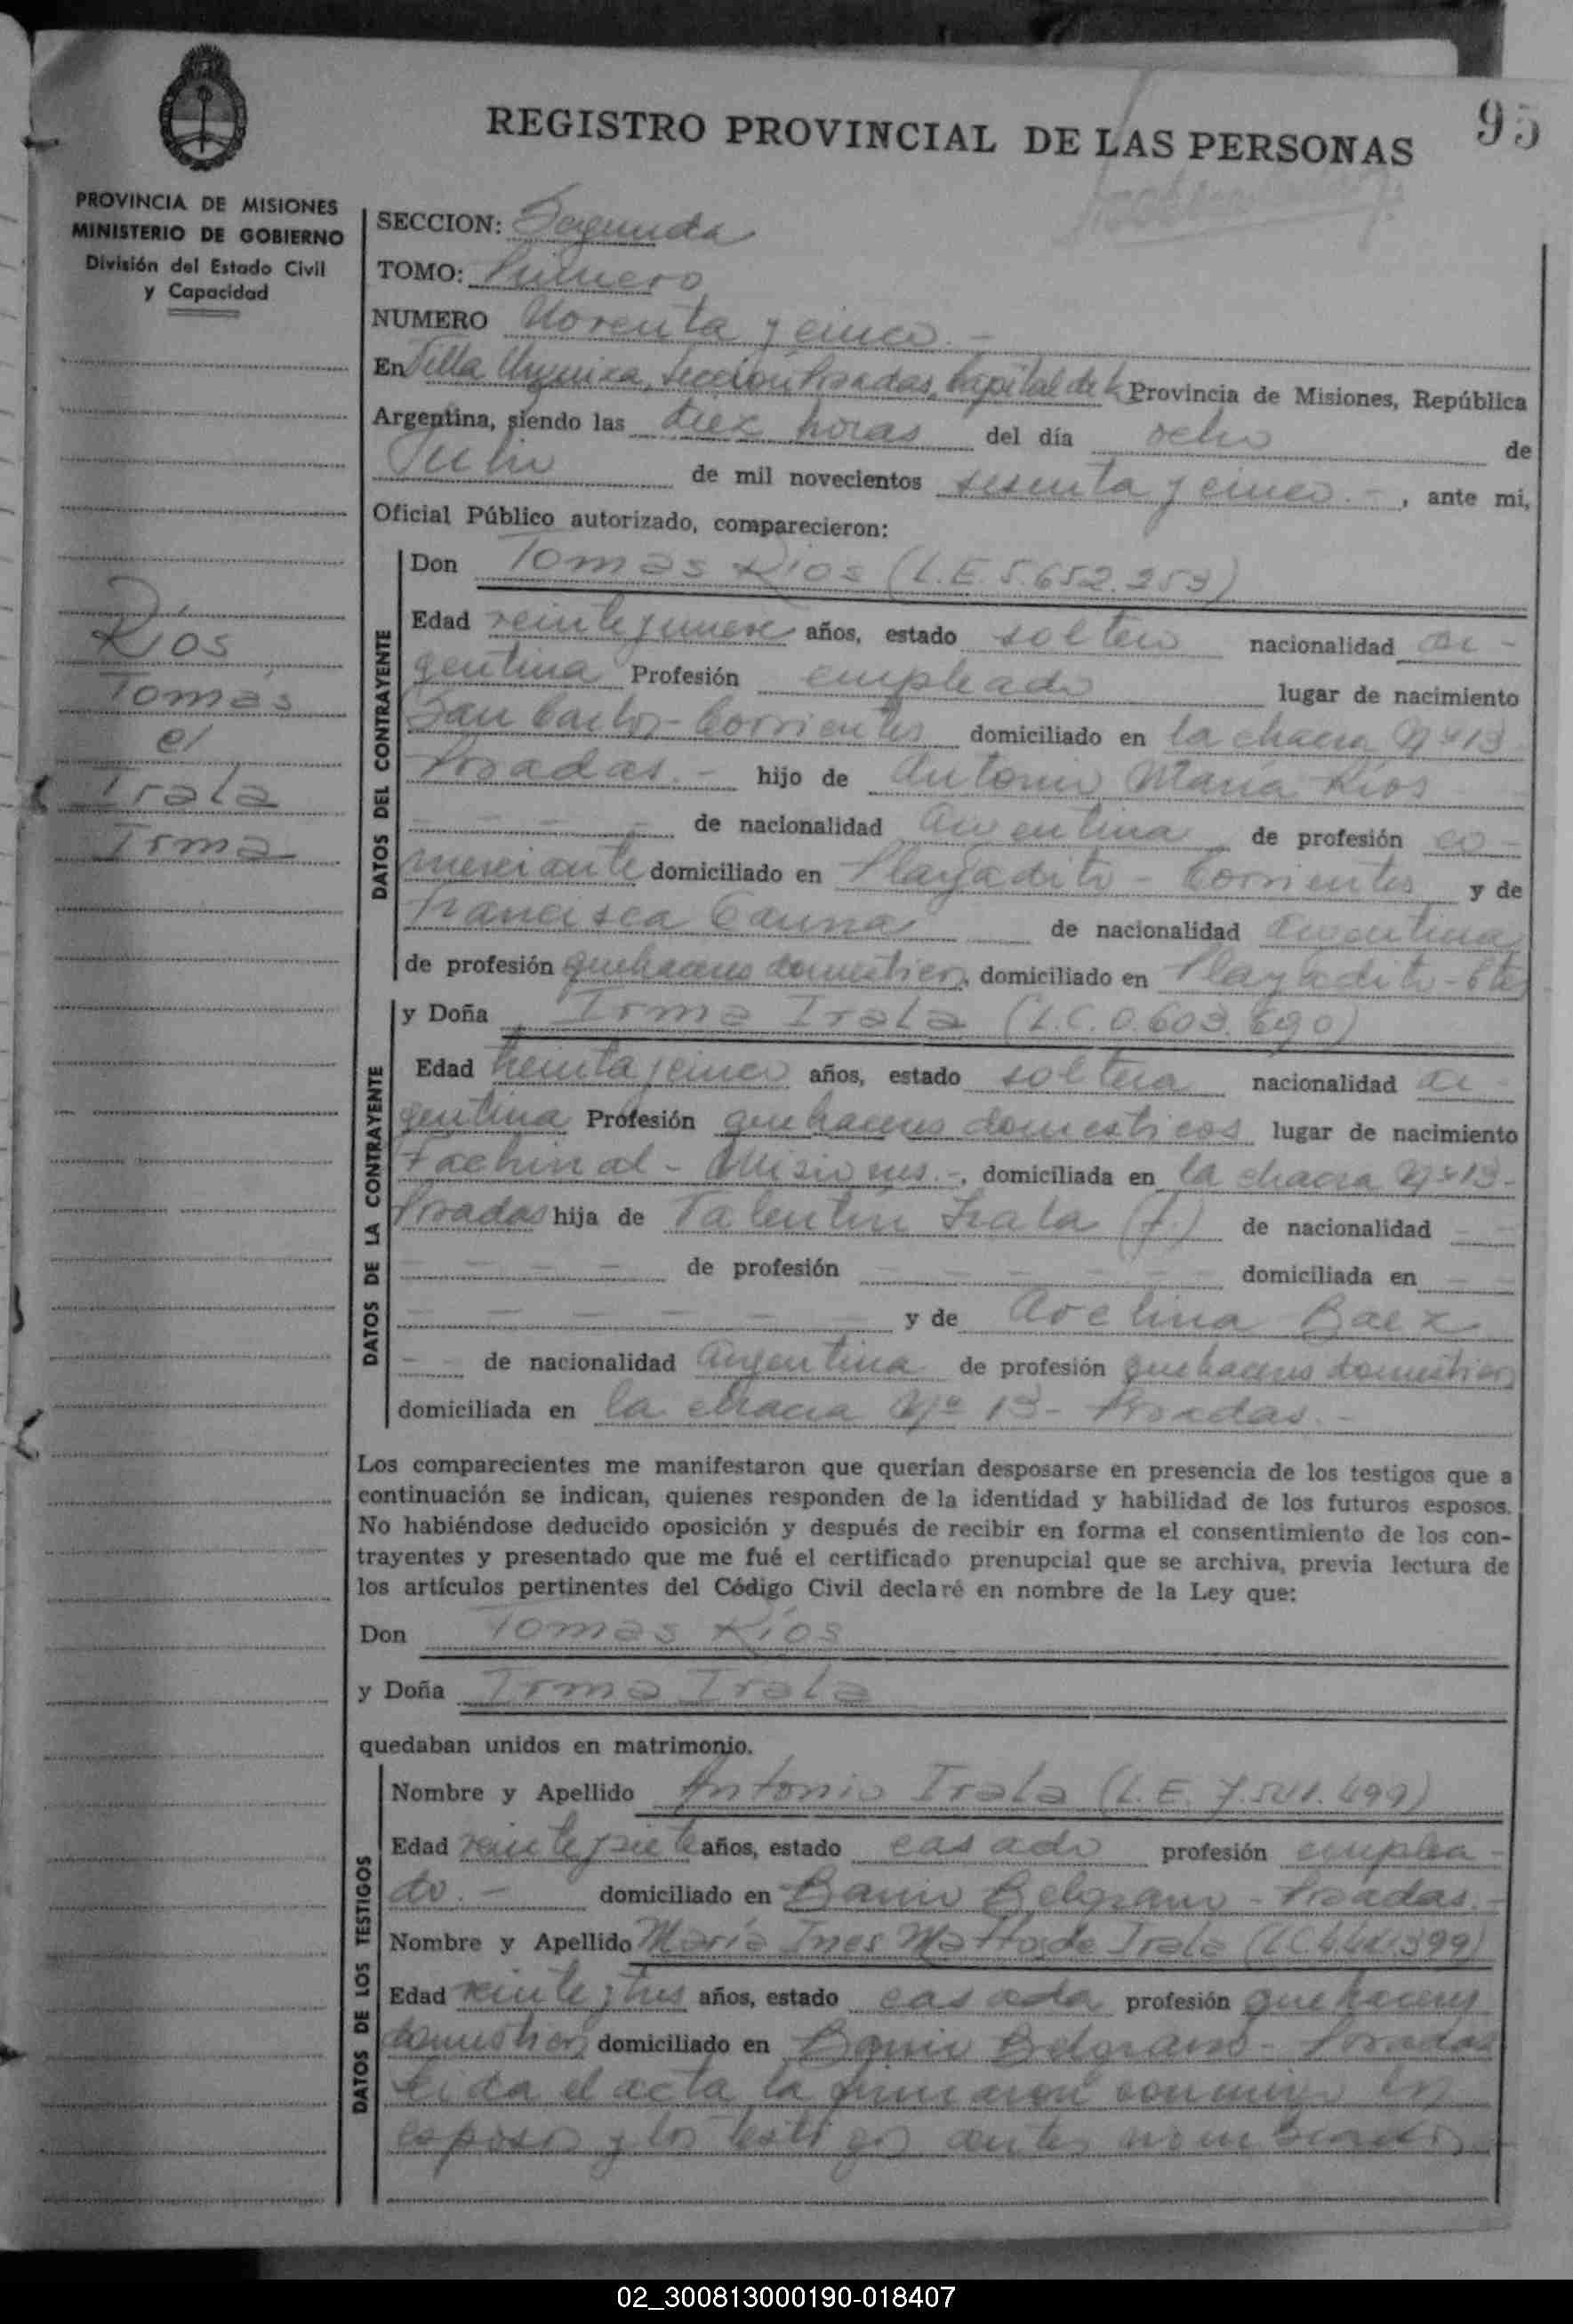 95
REGISTRO PROVINCIAL DE LAS PERSONAS
PROVINCIA DE MISIONES
MINISTERIO DE GOBIERNO
División del Estado Civil
y Capacidad
SECCION: Segunda
TOMO: Primero
NUMERO Noventa y cinco.-
En Villa Urquiza, Sección Posadas, Capital de la Provincia de Misiones, República
Argentina, siendo las diez horas del día ocho de
Julio de mil novecientos sesenta y cinco.-, ante mi,
Oficial Público autorizado, comparecieron:
Ríos
Tomás
e/
Irala
Irma
DATOS DEL CONTRAYENTE
Don Tomas Ríos (L.E. 5.652.253)
Edad veinte y nueve años, estado soltero nacionalidad ar-
gentina Profesión empleado lugar de nacimiento
San Carlos-Corrientes domiciliado en la chacra Nº 13
Posadas.- hijo de Antonio María Ríos
de nacionalidad argentina de profesión co-
merciante domiciliado en Playadito - Corrientes y de
Francisca de nacionalidad argentina
de profesión quehaceres domésticos, domiciliado en Playadito - Ctes
DATOS DE LA CONTRAYENTE
y Doña Irma Irala (L.C. 0.603.690)
Edad treinta y cinco años, estado soltera nacionalidad ar-
gentina Profesión quehaceres domesticos lugar de nacimiento
Fachinal - Misiones.-, domiciliada en la chacra Nº 13-
Posadas hija de Valentín Irala (f.) de nacionalidad - -
- - - - de profesión - - - - - - domiciliada en - -
- - - - - - y de Avelina Baez
- - de nacionalidad argentina de profesión quehaceres domésticos
domiciliada en la chacra Nº 13- Posadas.-
Los comparecientes me manifestaron que querían desposarse en presencia de los testigos que a
continuación se indican, quienes responden de la identidad y habilidad de los futuros esposos.
No habiéndose deducido oposición y después de recibir en forma el consentimiento de los con-
trayentes y presentado que me fué el certificado prenupcial que se archiva, previa lectura de
los artículos pertinentes del Código Civil declaré en nombre de la Ley que:
Don Tomas Ríos
y Doña Irma Irala
quedaban unidos en matrimonio.
DATOS DE LOS TESTIGOS
Nombre y Apellido Antonio Irala (L.E. 7.541.499)
Edad veinte y siete años, estado casado profesión emplea-
do.- domiciliado en Barrio Belgrano - Posadas.-
Nombre y Apellido María Ines de Irala
Edad veinte y tres años, estado casada profesión quehaceres
domésticos domiciliado en Barrio Belgrano - Posadas
Leida el acta la firmaron conmigo los
esposos y los testigos antes nombrados
02_300813000190-018407